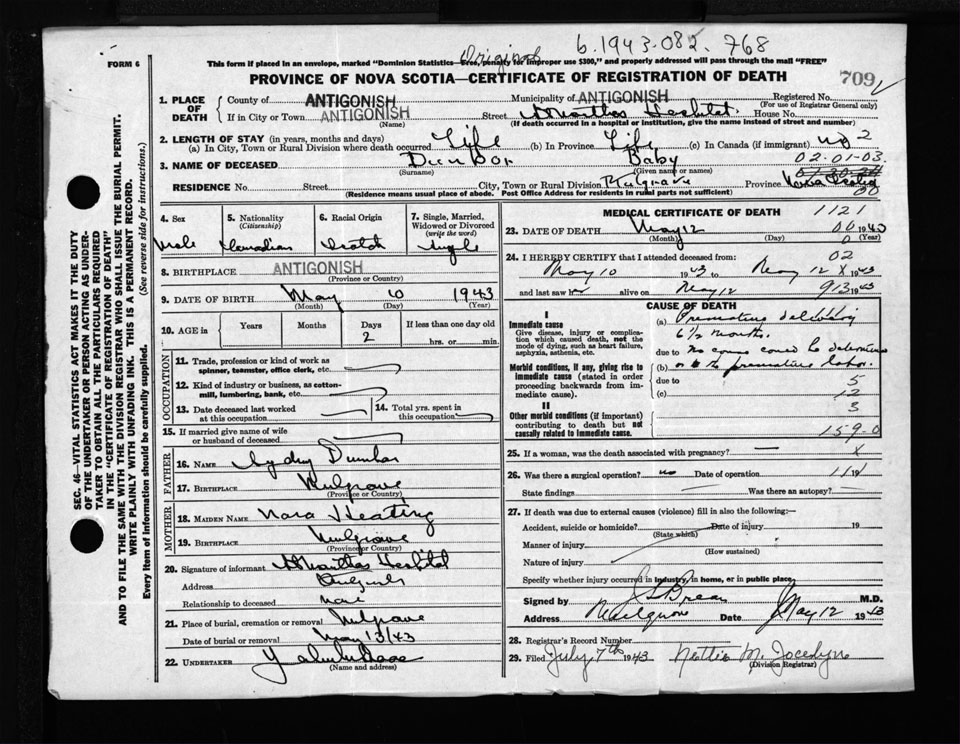 Original b.1943-082.768
FORM 6
This form if placed in an envelope, marked "Dominion Statistics—Free, penalty for improper use $300," and properly addressed will pass through the mail "FREE"
PROVINCE OF NOVA SCOTIA—CERTIFICATE OF REGISTRATION OF DEATH
709
SEC. 46—VITAL STATISTICS ACT MAKES IT THE DUTY
OF THE UNDERTAKER OR PERSON ACTING AS UNDER-
TAKER TO OBTAIN ALL THE PARTICULARS REQUIRED
IN THE "CERTIFICATE OF REGISTRATION OF DEATH"
AND TO FILE THE SAME WITH THE DIVISION REGISTRAR WHO SHALL ISSUE THE BURIAL PERMIT.
WRITE PLAINLY WITH UNFADING INK. THIS IS A PERMANENT RECORD.
Every item of information should be carefully supplied. (See reverse side for instructions.)
1. PLACE OF DEATH
County of ANTIGONISH Municipality of ANTIGONISH Registered No.
(For use of Registrar General only)
If in City or Town ANTIGONISH Street St Marthas Hospital House No.
(Name) (If death occurred in a hospital or institution, give the name instead of street and number)
2. LENGTH OF STAY (in years, months and days)
(a) In City, Town or Rural Division where death occurred Life (b) In Province Life (c) In Canada (if immigrant) 2
3. NAME OF DECEASED Dunbar Baby 02-01-03
(Surname) (Given name or names)
RESIDENCE No. Street City, Town or Rural Division Mulgrave Province Nova Scotia
(Residence means usual place of abode. Post Office Address for residents in rural parts not sufficient) 00
4. Sex
Male
5. Nationality
(Citizenship)
Canadian
6. Racial Origin
Scotch
7. Single, Married,
Widowed or Divorced
(write the word)
Single
8. BIRTHPLACE ANTIGONISH
(Province or County)
9. DATE OF BIRTH May 10 1943
(Month) (Day) (Year)
10. AGE in Years Months Days If less than one day old
2 hrs. or min.
OCCUPATION
11. Trade, profession or kind of work as
spinner, teamster, office clerk, etc.
12. Kind of industry or business, as cotton-
mill, lumbering, bank, etc.
13. Date deceased last worked
at this occupation
14. Total yrs. spent in
this occupation
15. If married give name of wife
or husband of deceased
FATHER
16. NAME Sydney Dunbar
17. BIRTHPLACE Mulgrave
(Province or County)
MOTHER
18. MAIDEN NAME Nora Keating
19. BIRTHPLACE Mulgrave
(Province or County)
20. Signature of informant St Marthas Hospital
Address Antigonish
Relationship to deceased none
21. Place of burial, cremation or removal Mulgrave
Date of burial or removal May 13/43
22. UNDERTAKER
(Name and address)
MEDICAL CERTIFICATE OF DEATH 1121
23. DATE OF DEATH May 12 00 1943
(Month) (Day) 0 (Year)
24. I HEREBY CERTIFY that I attended deceased from: 02
May 10 1943 to May 12 X 1943
and last saw h alive on May 12 913 1943
CAUSE OF DEATH
I
Immediate cause
Give disease, injury or complica-
tion which caused death, not the
mode of dying, such as heart failure,
asphyxia, asthenia, etc.
(a) Premature delivery
6 1/2 months.
due to No cause could be determined
Morbid conditions, if any, giving rise to
immediate cause (stated in order
proceeding backwards from im-
mediate cause).
(b) premature labor.
due to 5
(c) 12
II
Other morbid conditions (if important)
contributing to death but not
causally related to immediate cause.
3
159-0
25. If a woman, was the death associated with pregnancy? — X
26. Was there a surgical operation? no Date of operation 1111
State findings Was there an autopsy?
27. If death was due to external causes (violence) fill in also the following:—
Accident, suicide or homicide? Date of injury 19
(State which)
Manner of injury
(How sustained)
Nature of injury
Specify whether injury occurred in industry, in home, or in public place
Signed by M.D.
Address Mulgrave Date May 12 1943
28. Registrar's Record Number
29. Filed July 7th 1943 Nettie M. Jocelyn
(Division Registrar)